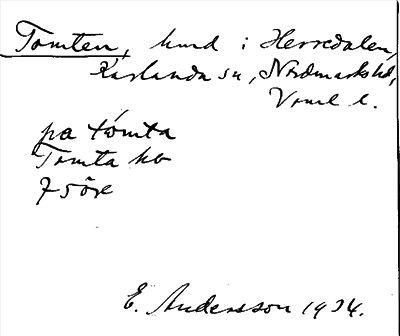 Tomten, hmd i Herredalen,
Karlanda sn, Nordmarks hd,
Vrml l.
på tómta
Tomta hb
7 söre
E. Andersson 1934.